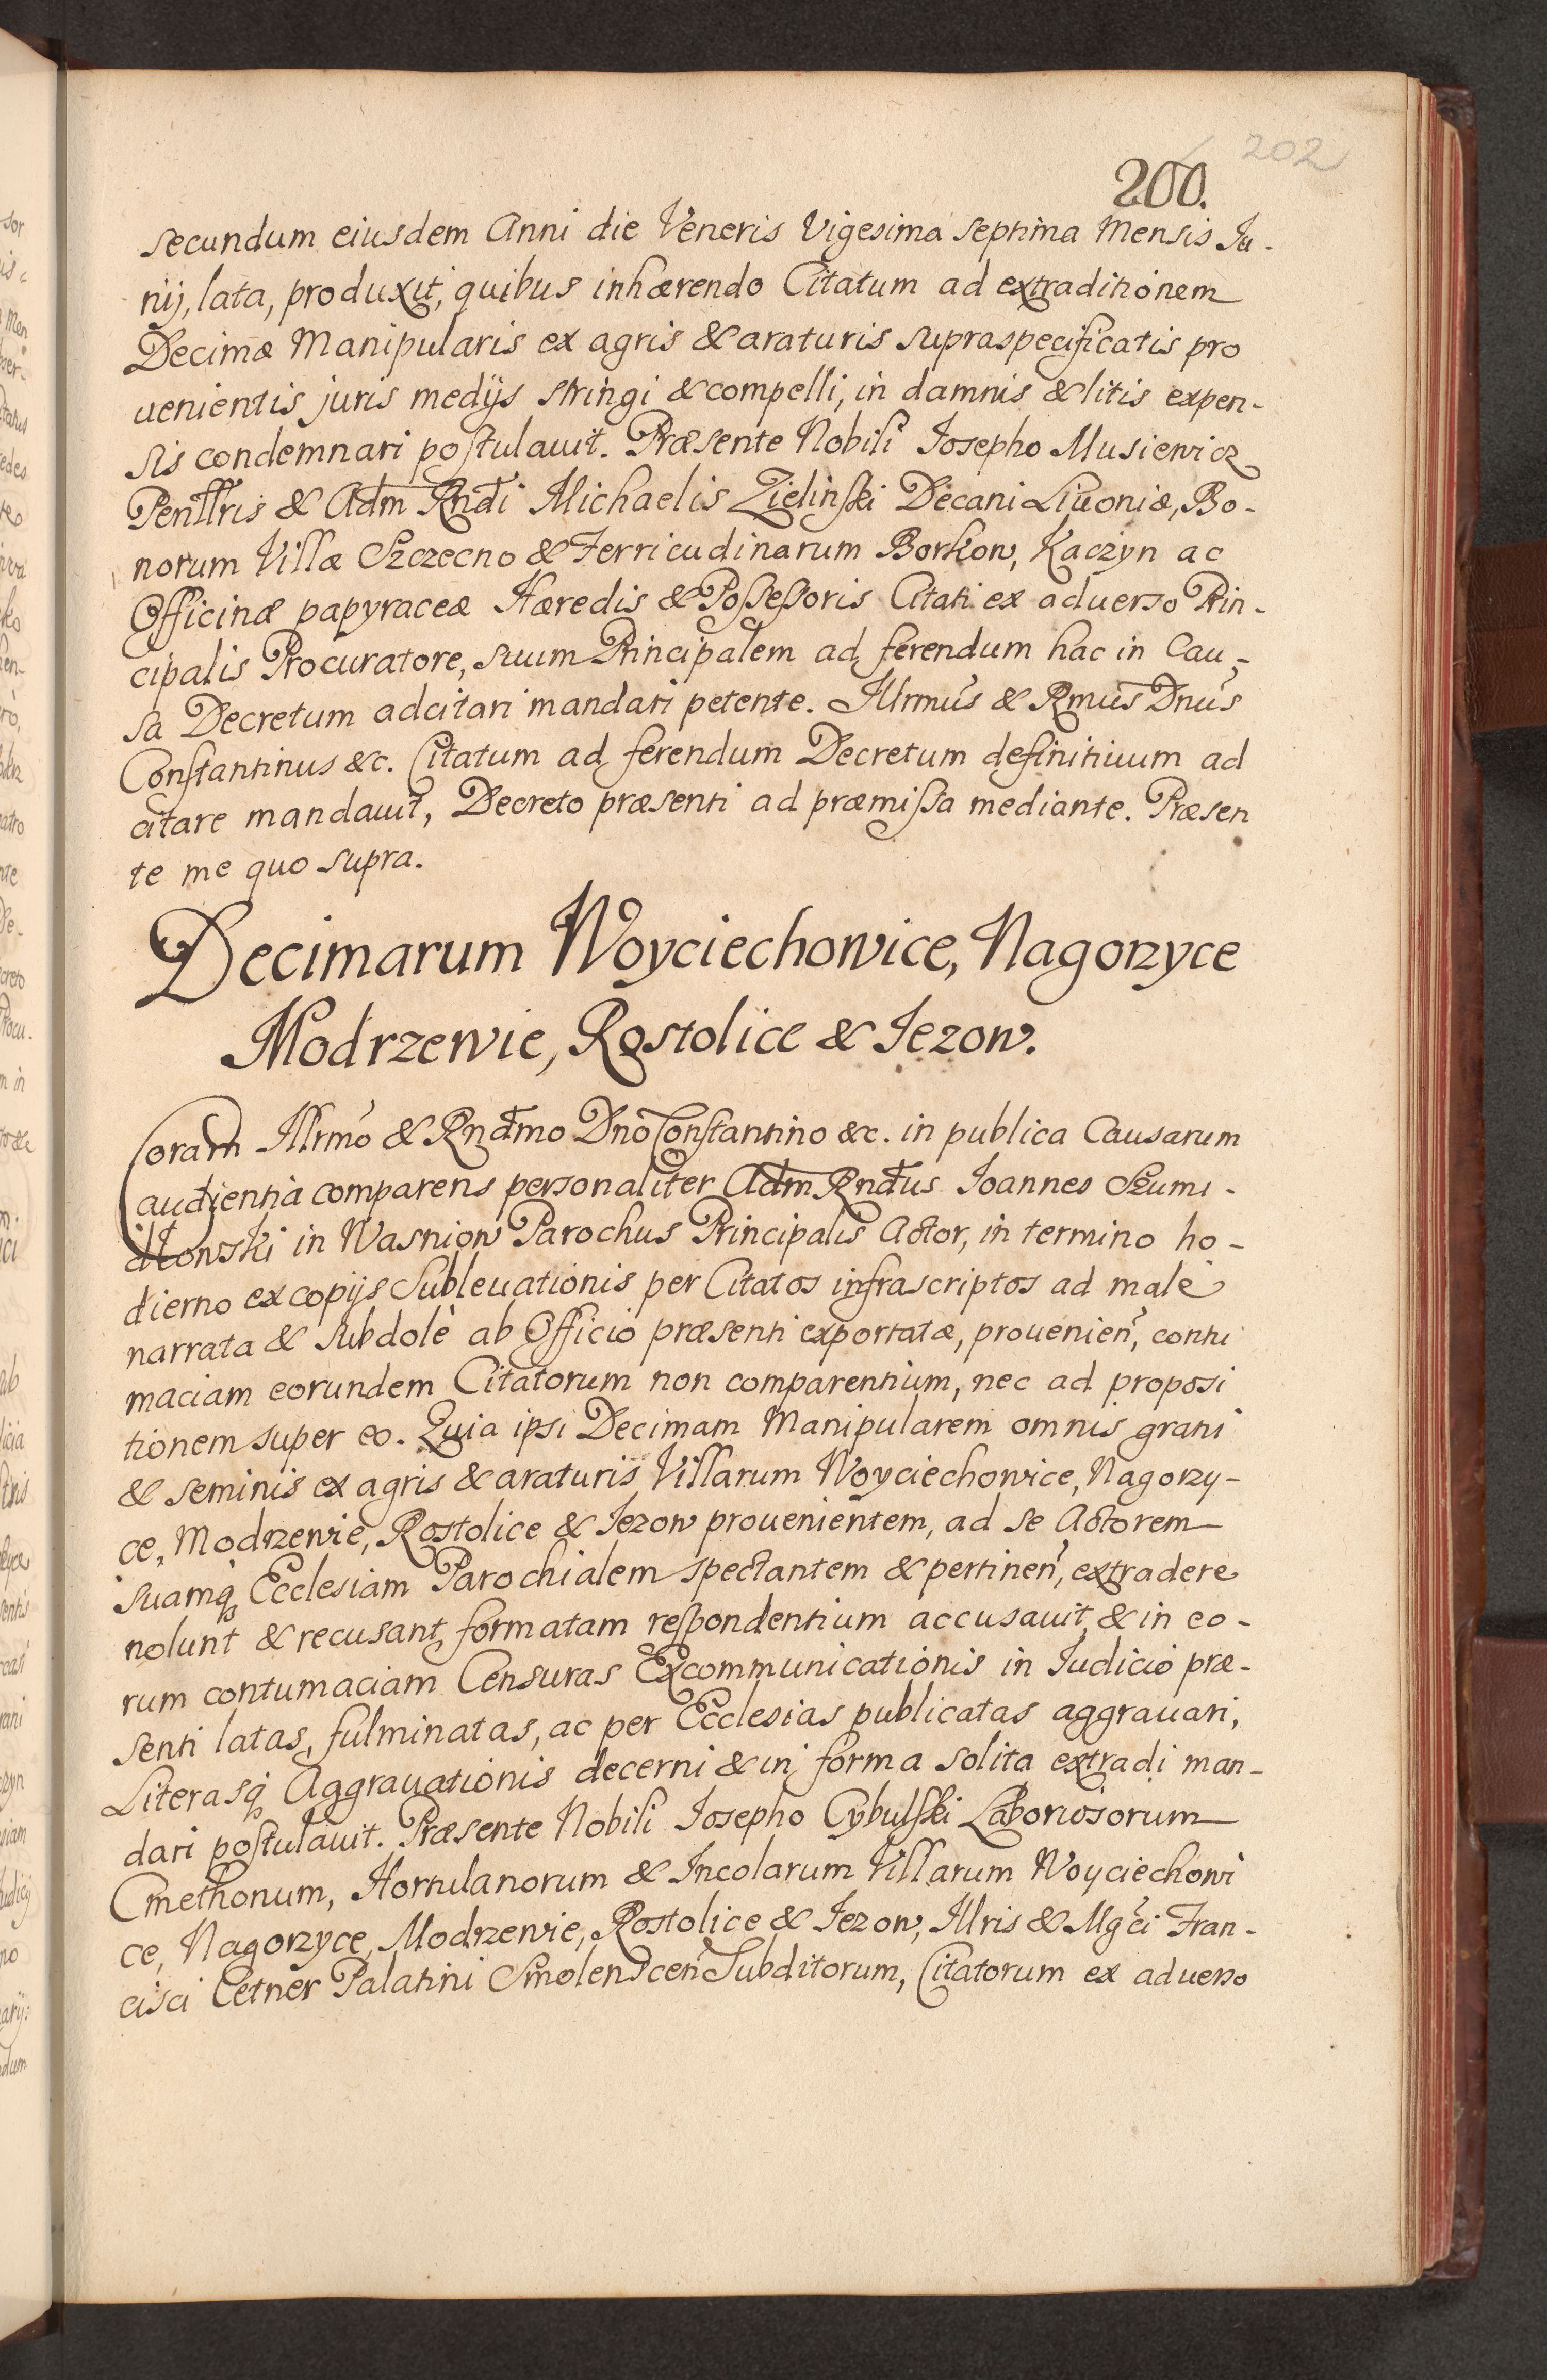 202
200.
secundum eiusdem Anni die Veneris Vigesima septima Mensis Iu-
nij, lata, produxit, quibus inhærendo Citatum ad extraditionem
Decimæ Manipularis ex agris & araturis supraspecificatis pro
uenientis juris medijs stringi & compelli, in damnis & litis expen-
sis condemnari postulauit. Præsente Nobili Josepho Musiewicz
Penllris & Adm Rndi Michaelis Zielinski Decani Liuoniæ, Bo-
norum Villæ Szczecno & Terricudinarum Borkow, Kaczyn ac
Officinæ papyraceæ Hæredis & Possessoris Citati ex aduerso Prin-
cipalis Procuratore, suum Principalem ad ferendum hac in Cau-
sa Decretum adcitari mandari petente. Illrmus & Rmus Dnus
Constantinus &c. Citatum ad ferendum Decretum definitiuum ad
citare mandauit, Decreto præsenti ad præmissa mediante. Præsen
te me quo supra.
Decimarum Woyciechowice, Nagorzyce
Modrzewie, Rostolice & Jezow.
Coram Illrmo & Rndmo Dno Constantino &c. in publica Causarum
audientia comparens personaliter Adm Rndus Joannes Szumi-
dłowski in Wasniow Parochus Principalis Actor, in termino ho-
dierno ex copijs Subleuationis per Citatos infrascriptos ad malè
narrata & subdolè ab Officio præsenti exportatæ, prouenien, contu
maciam eorundem Citatorum non comparentium, nec ad proposi
tionem super eo. Quia ipsi Decimam Manipularem omnis grani
& seminis ex agris & araturis Villarum Woyciechowice, Nagorzy-
ce, Modrzewie, Rostolice & Jezow prouenientem, ad se Actorem
suamq Ecclesiam Parochialem spectantem & pertinen, extradere
nolunt & recusant, formatam respondentium accusauit, & in eo-
rum contumaciam Censuras Excommunicationis in Iudicio præ-
senti latas, fulminatas, ac per Ecclesias publicatas aggrauari,
Literasq Aggrauationis decerni & in forma solita extradi man-
dari postulauit. Præsente Nobili Josepho Cybulski Laboriosorum
Cmethonum, Hortulanorum & Incolarum Villarum Woyciechowi
ce, Nagorzyce, Modrzewie, Rostolice & Jezow, Illris & Mgci Fran-
cisci Cetner Palatini Smolenscen Subditorum, Citatorum ex aduerso